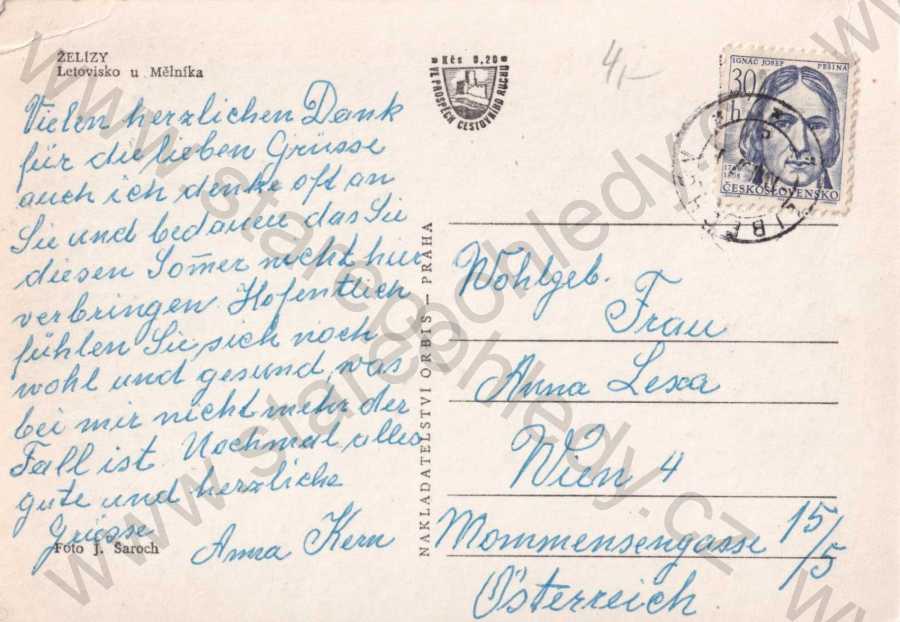 ŽELÍZY
Letovisko u Mělníka
Vielen herzlichen Dank
für die lieben Grüsse
auch ich denke oft an
Sie und bedauere das Sie
diesen Somer nicht hier
verbringen. Hofentlich
fühlen Sie sich noch
wohl und gesund was
bei mir nicht mehr der
Fall ist. Nochmal alles
gute und herzliche
Grüsse
Anna Kern
Foto J. Šaroch
Kčs 0,20
VE PROSPĚCH CESTOVNÍHO RUCHU
NAKLADATELSTVÍ ORBIS — PRAHA
4,-
IGNÁC JOSEF PEŠINA
30 h
ČESKOSLOVENSKO
Wohlgeb.
Frau
Anna Lexa
Wien 4
Mommensengasse 15/5
Österreich.
www.starepohledy.cz
www.starepohledy.cz